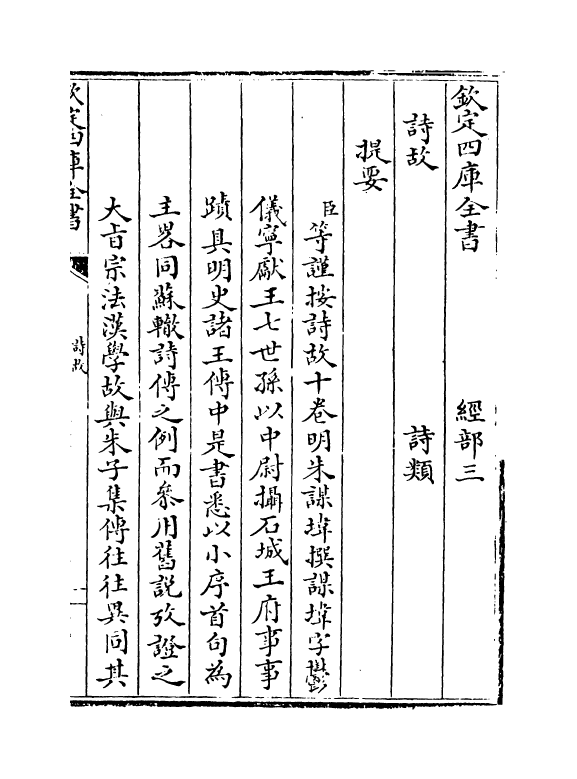 欽定四庫全書　經部三
詩故　詩類
提要
臣等謹按詩故十卷明朱謀㙔撰謀㙔字鬱
儀寧獻王七世孫以中尉攝石城王府事事
蹟具明史諸王傳中是書悉以小序首句為
主畧同蘇轍詩傳之例而叅用舊説攷證之
大㫖宗法漢學故與朱子集傳往往異同其
欽定四庫全書　詩故　一